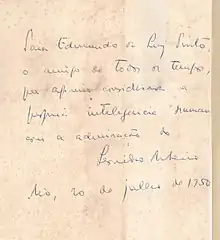 Para Edmundo da Luz Pinto,
o amigo de todos os tempos,
que afirma considerada a
própria inteligencia humana
com a admiração do
Rio, 20 de julho de 1950